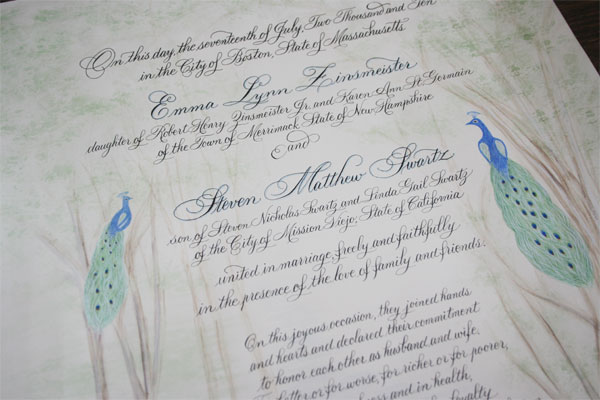 On this day, the seventeenth of July, Two Thousand and Ten
in the City of Boston, State of Massachusetts
Emma Lynn Zinsmeister
daughter of Robert Henry Zinsmeister Jr. and Karen Ann St. Germain
of the Town of Merrimack, State of New Hampshire
and
Steven Matthew Swartz
son of Steven Nicholas Swartz and Linda Gail Swartz
of the City of Mission Viejo, State of California
united in marriage, freely and faithfully
in the presence of the love of family and friends.
On this joyous occasion, they joined hands
and hearts and declared their commitment
to honor each other as husband and wife,
or for worse, for richer or for poorer,
and in health,
loyalty